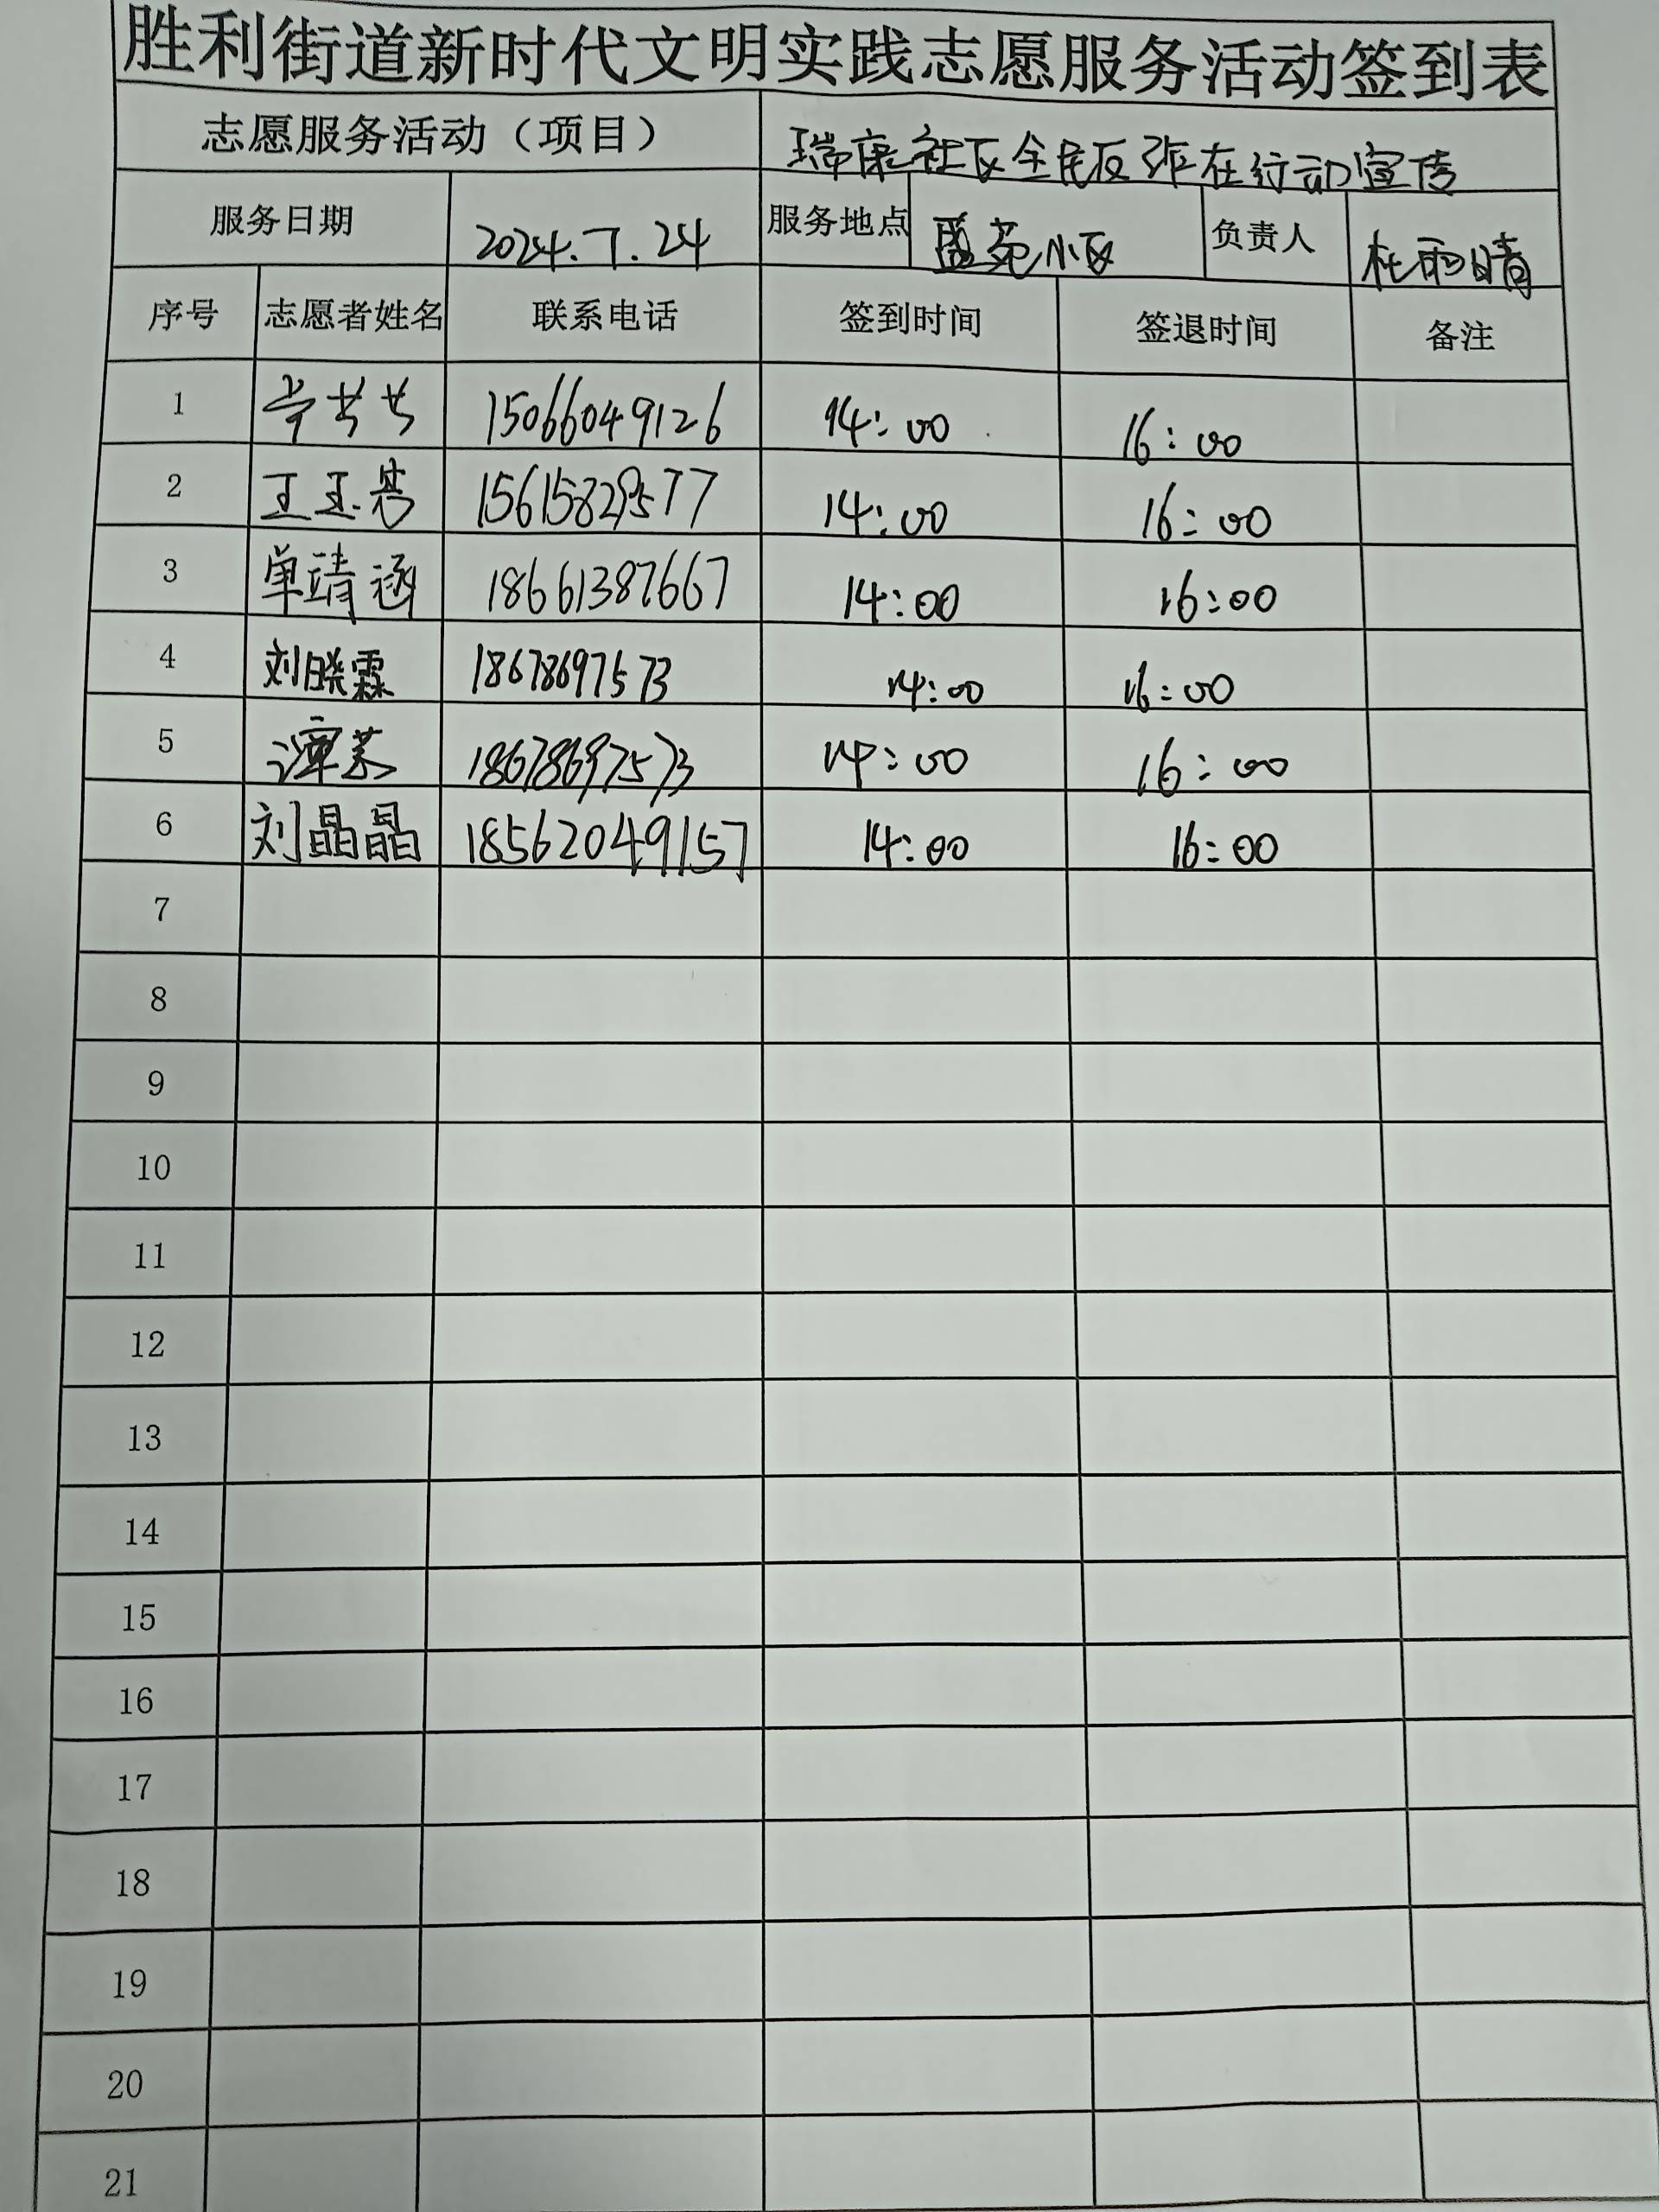 胜利街道新时代文明实践志愿服务活动签到表
志愿服务活动（项目） 瑞康社区全民反诈在行动宣传
服务日期 2024.7.24 服务地点 盛苑小区 负责人 杜雨晴
序号 志愿者姓名 联系电话 签到时间 签退时间 备注
1 15066049126 14:00 16:00
2 王玉 15615829577 14:00 16:00
3 单靖涵 18661387667 14:00 16:00
4 刘晓霖 18678697573 14:00 16:00
5 18678697573 14:00 16:00
6 刘晶晶 18562049157 14:00 16:00
7
8
9
10
11
12
13
14
15
16
17
18
19
20
21